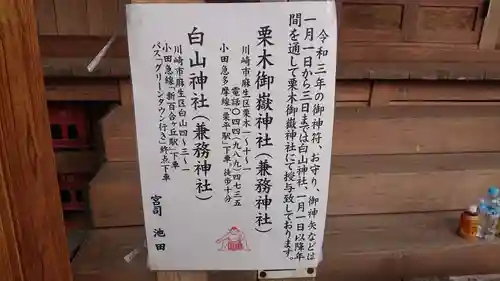 令和三年の御神符、お守り、御神矢などは
一月一日から三日までは白山神社、一月一日以降年
間を通して栗木御嶽神社にて授与致しております。
栗木御嶽神社(兼務神社)
川崎市麻生区栗木一〜十〜一
電話〇四四、九八九、四七三五
小田急多摩線「栗平駅」下車、徒歩十分
白山神社(兼務神社)
川崎市麻生区白山四〜三〜一
小田急線「新百合ヶ丘駅」下車
バス「グリーンタウン行き」終点下車
宮司 池田